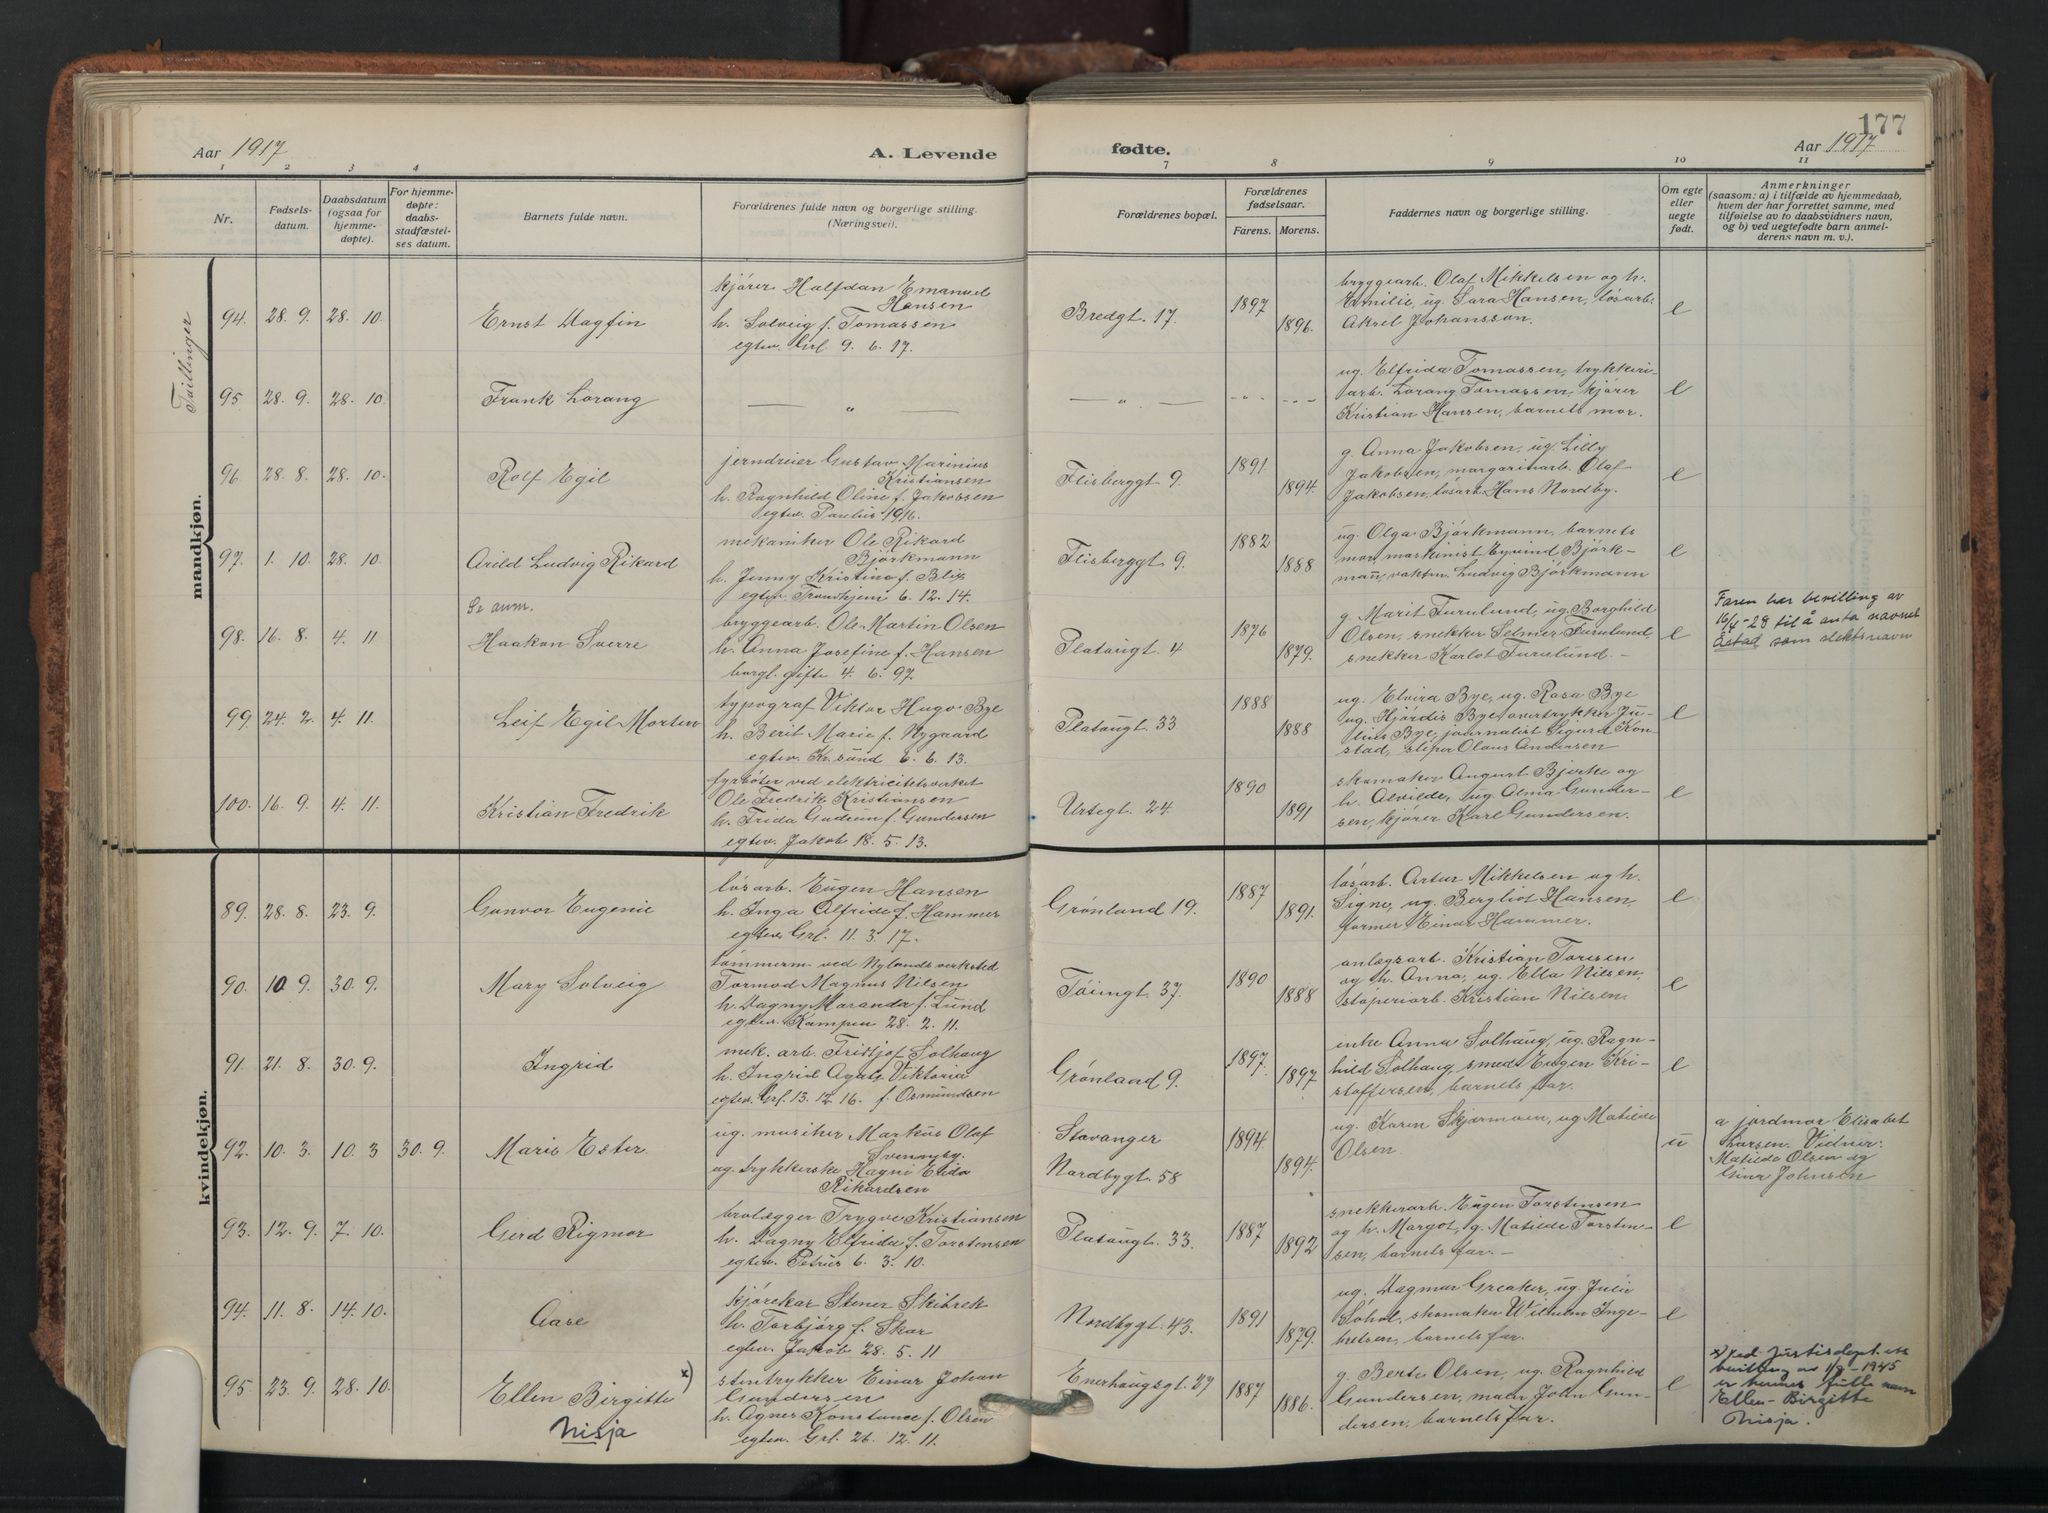 Aar 1917
A. Levende
fødte.
177
Aar 1917
1 2 3 4 7 8 9 10 11
Nr.
Fødsels-
datum.
Daabsdatum
(ogsaa for
hjemme-
døpte).
For hjemme-
døpte:
daabs-
stadfæstel-
ses datum.
Barnets fulde navn.
Forældrenes fulde navn og borgerlige stilling.
(Næringsvei).
Forældrenes bopæl.
Forældrenes
fødselsaar.
Farens. Morens.
Faddernes navn og borgerlige stilling.
Om egte
eller
uegte
født.
Anmerkninger
(saasom: a) i tilfælde av hjemmedaab,
hvem der har forrettet samme, med
tilføielse av to daabsvidners navn,
og b) ved uegtefødte barn anmel-
derens navn m. v.).
mandkjøn.
Tvillinger
94. 28. 9. 28. 10. Ernst Dagfin
kjører Halfdan Emanuel
Hansen
h. Solveig f. Tomassen
egtev. Grl. 9. 6. 17.
Bredgt. 17. 1897 1896.
bryggearb. Olaf Mikkelsen og h.
Emilie, ug. Sara Hansen, løsarb.
Aksel Johansson.
e
95. 28. 9. 28. 10. Frank Lorang
— „ — — „ — - „ - - „ -
ug. Elfrida Tomassen, trykkeri-
arb. Lorang Tomassen, kjører
Kristian Hansen, barnets mor.
e
96. 28. 8. 28. 10. Rolf Egil
jerndreier Gustav Marinius
Kristiansen
h. Ragnhild Oline f. Jakobsen
egtev. Paulus 1916.
Flisberggt. 9. 1891 1894.
g. Anna Jakobsen, ug. Lilly
Jakobsen, margarinarb. Olaf
Jakobsen, løsarb. Hans Nordby.
e
97. 1. 10. 28. 10. Arild Ludvig Rikard
mekaniker Ole Rikard
Bjørkmann
h. Jenny Kristine f. Blix
egtev. Trondhjem 6. 12. 14.
Flisberggt. 9. 1882 1888
ug. Olga Bjørkmann, barnets
mor, maskinist Eyvind Bjørk-
mann, vaktm. Ludvig Bjørkmann
e
Se anm.
98. 16. 8. 4. 11 Haakon Sverre
bryggearb. Ole Martin Olsen
h. Anna Josefine f. Hansen
borgl. gifte 4. 6. 97.
Plataugt. 4 1876 1879.
g. Marit Furulund, ug. Borghild
Olsen, snekker Selmer Furulund,
snekker Karlot Furulund. -
e
Faren har bevilling av
16/4-28 til å anta navnet
Åstad som slektsnavn
99. 24. 2. 4. 11. Leif Egil Morten
typograf Viktor Hugo Bye
h. Berit Marie f. Nygaard
egtev. Kr.sund 6. 6. 13.
Plataugt. 33 1888 1888
ug. Elvira Bye, ug. Rosa Bye
ug. Hjørdis Bye, overtrykker Ju-
lius Bye, journalist Sigurd Kon-
stad, sliper Olaus Andersen
e
100. 16. 9. 4. 11. Kristian Fredrik
fyrbøter ved elektricitetsverket
Ole Fredrik Kristiansen
h. Frida Gudrun f. Gundersen
egtev. Jakob 18. 5. 13.
Urtegt. 24. 1890 1891
skomaker August Bjerke og
h. Alvilde, ug. Alma Gunder-
sen, kjører Karl Gundersen.
e
kvindekjøn.
89. 28. 8. 23. 9. Gunvor Eugenie
løsarb. Eugen Hansen
h. Inga Alfride f. Hammer
egtev. Grl. 11. 3. 17.
Grønland 19. 1887 1891.
løsarb. Artur Mikkelsen og h.
Signe, ug. Bergliot Hansen,
former Einar Hammer.
e
90. 10 9. 30. 9. Mary Solveig
tømmerm. ved Nylands verksted
Tormod Magnus Nilsen
h. Dagny Marander f. Lund
egtev. Kampen 28. 2. 11.
Tøiengt. 37. 1890 1888
anlægsarb. Kristian Toresen
og h. Anna, ug. Ella Nilsen,
støperiarb. Kristian Nilsen.
e
91. 21. 8. 30. 9. Ingrid
mek. arb. Fridtjof Solhaug
h. Ingrid Agata Viktoria
egtev. Grl. 13. 12. 16. f. Osmundsen
Grønland 9. 1897. 1897
enke Anna Solhaug, ug. Ragn-
hild Solhaug, smed Eugen Kri-
stoffersen, barnets far.
e
92. 10. 3. 10. 3 30. 9. Marie Ester
ug. musiker Markus Olaf
ug. trykkerske Hagni Elida
Rikardsen
Stavanger
Nordbygt. 58
1894. 1894.
ug. Karen Skjermoen, ug Matilde
Olsen
u
a jordmor Elisabet
Larsen. Vidner:
Matilde Olsen og
Gina Johnsen
93. 12. 9. 7. 10. Gerd Rigmor
brolægger Trygve Kristiansen
h. Dagny Elfrida f. Torstensen
egtev. Petrus 6. 3. 10.
Plataugt. 33. 1887 1892
snekkerarb. Eugen Torstensen
og h. Margot, g. Matilde Torsten-
sen, barnets far. -
e
94. 11. 8. 14. 10. Aase
kjørekar Stener Skibrek
h. Torbjørg f. Skar
egtev. Jakob 28. 5. 11
Nordbygt. 43. 1891 1879.
ug. Dagmar Greaker, ug. Julie
Søhol, skomaker Wilhelm Inge-
bretsen, barnets far.
e
95. 23. 9. 28. 10. Ellen Birgitte x)
Nisja
stentrykker Einar Johan
Gundersen
h. Agnes Konstance f. Olsen
egtev. Grl. 26. 12. 11.
Enerhaugsgt. 27 1887 1886.
g. Berte Olsen, ug. Ragnhild
Gundersen, maler John Gun-
dersen, barnets far.
e
x) Ved Justisdept.ets
bevilling av 1/9-1945
er hennes fulle navn
Ellen-Birgitte
Nisja.